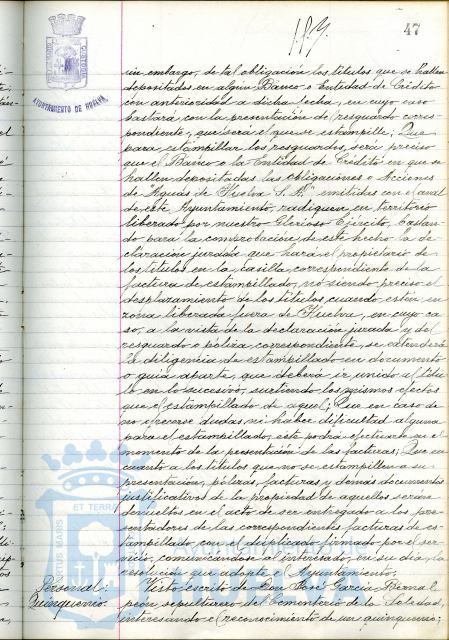 47
AYUNTAMIENTO DE HUELVA
sin embargo, de tal obligación los títulos que se hallen
depositados en algún Banco o Entidad de Crédito
con anterioridad a dicha fecha, en cuyo caso
bastará con la presentación del resguardo corres-
pondiente, que será el que se estampille; Que
para estampillar los resguardos, será preciso
que el Banco o la Entidad de Crédito en que se
hallen depositadas las obligaciones o Acciones
de "Aguas de Huelva S.A." emitidas con el aval
de este Ayuntamiento, radiquen en territorio
liberado por nuestro Glorioso Ejército, bastan-
do para la comprobación de este hecho la de-
claración jurada que hará el propietario de
los títulos en la casilla correspondiente de la
factura de estampillado, no siendo preciso el
desplazamiento de los títulos cuando estén en
zona liberada fuera de Huelva, en cuyo ca-
so, a la vista de la declaración jurada y del
resguardo o póliza correspondiente, se extenderá
la diligencia de estampillado en documento
o guía aparte, que deberá ir unido al títu-
lo en lo sucesivo, surtiendo los mismos efectos
que el estampillado de aquel; Que en caso de
no ofrecerse dudas ni haber dificultad alguna
para el estampillado, este podrá efectuarse en el
momento de la presentación de las facturas; Que en
cuanto a los títulos que no se estampillen a su
presentación, pólizas, facturas y demás documentos
justificativos de la propiedad de aquellos serán
devueltos en el acto de ser entregado a los pre-
sentadores de las correspondientes facturas de es-
tampillado, con el duplicado firmado por el ser-
vicio, comunicandose al interesado, en su día, la
resolución que adopte el Ayuntamiento.
Personal: Visto escrito de Don José García Bernal
Quinquenio. peón sepulturero del Cementerio de la Soledad,
interesando el reconocimiento de un quinquenio;
ET TERRÆ